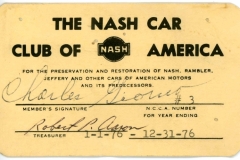 THE NASH CAR
CLUB OF NASH AMERICA
FOR THE PRESERVATION AND RESTORATION OF NASH, RAMBLER,
JEFFERY AND OTHER CARS OF AMERICAN MOTORS
AND ITS PREDECESSORS.
Charles #3
MEMBER'S SIGNATURE N.C.C.A. NUMBER
FOR YEAR ENDING
Robert P.
TREASURER 1-1-76 - 12-31-76